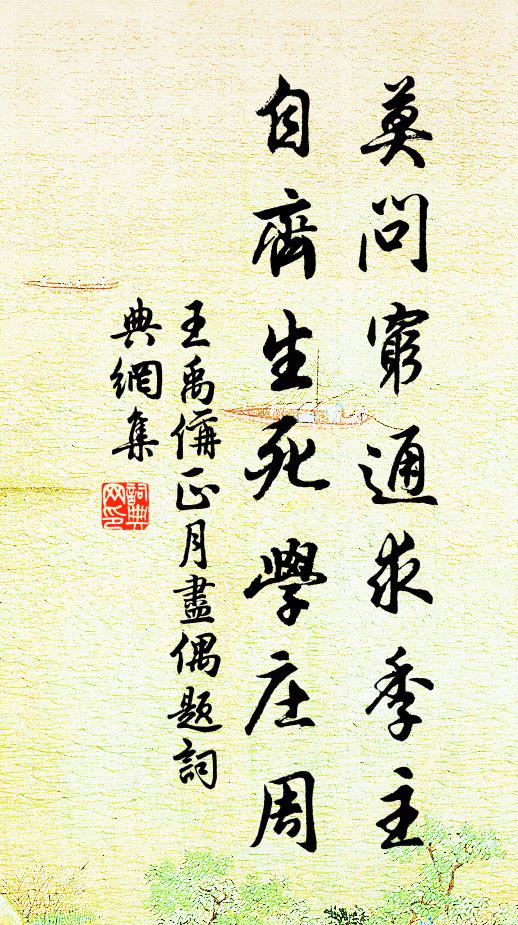 莫問窮通求季主
自齊生死學庄周
王禹偁正月盡偶題詞
典網集
詞典网印